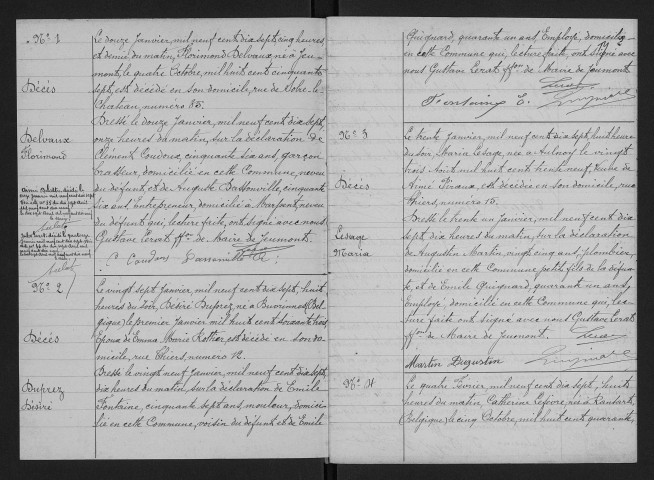 Nº 1
Décès
Delvaux
Florimond
Le douze Janvier, mil neuf cent dix sept, cinq heures
et demie du matin, Florimond Delvaux né à Jeu-
mont, le quatre Octobre, mil huit cent cinquante
sept, est décédé en son domicile, rue de Solre-le-
Chateau, numéro 85.
Dressé le douze Janvier, mil neuf cent dix sept,
onze heures du matin, sur la déclaration de
Clément Coudoux, cinquante six ans, garçon
brasseur, domicilié en cette Commune, neveu
du défunt et de Auguste Dassonville, cinquante
six ans, Entrepreneur, domicilié à Marpent, neveu
du défunt qui, lecture faite, ont signé avec nous
Gustave Lerat ffons de Maire de Jeumont.
C. Coudoux Dassonville A.
Nº 2
Décès
Duprez
Désiré
Le vingt sept Janvier, mil neuf cent dix sept, huit
heures du soir, Désiré Duprez né à Buvrinnes (Bel-
gique) le premier Janvier mil huit cent soixante trois,
Epoux de Emma Marie est décédé en son do-
micile, rue Thiers, numéro 12.
Dressé le vingt neuf Janvier, mil neuf cent dix sept,
dix heures du matin, sur la déclaration de Emile
Fontaine, cinquante sept ans, mouleur, domici-
lié en cette Commune, voisin du défunt et de Emile
Quignard, quarante un ans, Employé, domicilié
en cette Commune qui, lecture faite, ont signé avec
nous Gustave Lerat ffons de Maire de Jeumont.
Fontaine E. Quignard
Nº 3
Décès
Lesage
Maria
Le trente Janvier, mil neuf cent dix sept, huit heures
du soir, Maria Lesage, née à Aulnoy le vingt
trois Août mil huit cent trente neuf, Veuve de
Aimé est décédée en son domicile, rue
Thiers, numéro 15.
Dressé le trente un Janvier, mil neuf cent dix
sept, dix heures du matin, sur la déclaration
de Augustin Martin, vingt cinq ans, plombier,
domicilié en cette Commune petit fils de la défun-
te, et de Emile Quignard, quarante un ans,
Employé, domicilié en cette Commune qui, lec-
ture faite ont signé avec nous Gustave Lerat
ffons de Maire de Jeumont. Lerat
Martin Augustin Quignard
Nº 4
Le quatre Février, mil neuf cent dix sept, huit
heures du matin, Catherine Lefèvre, née à Ransart
(Belgique) le cinq Octobre, mil huit cent quarante